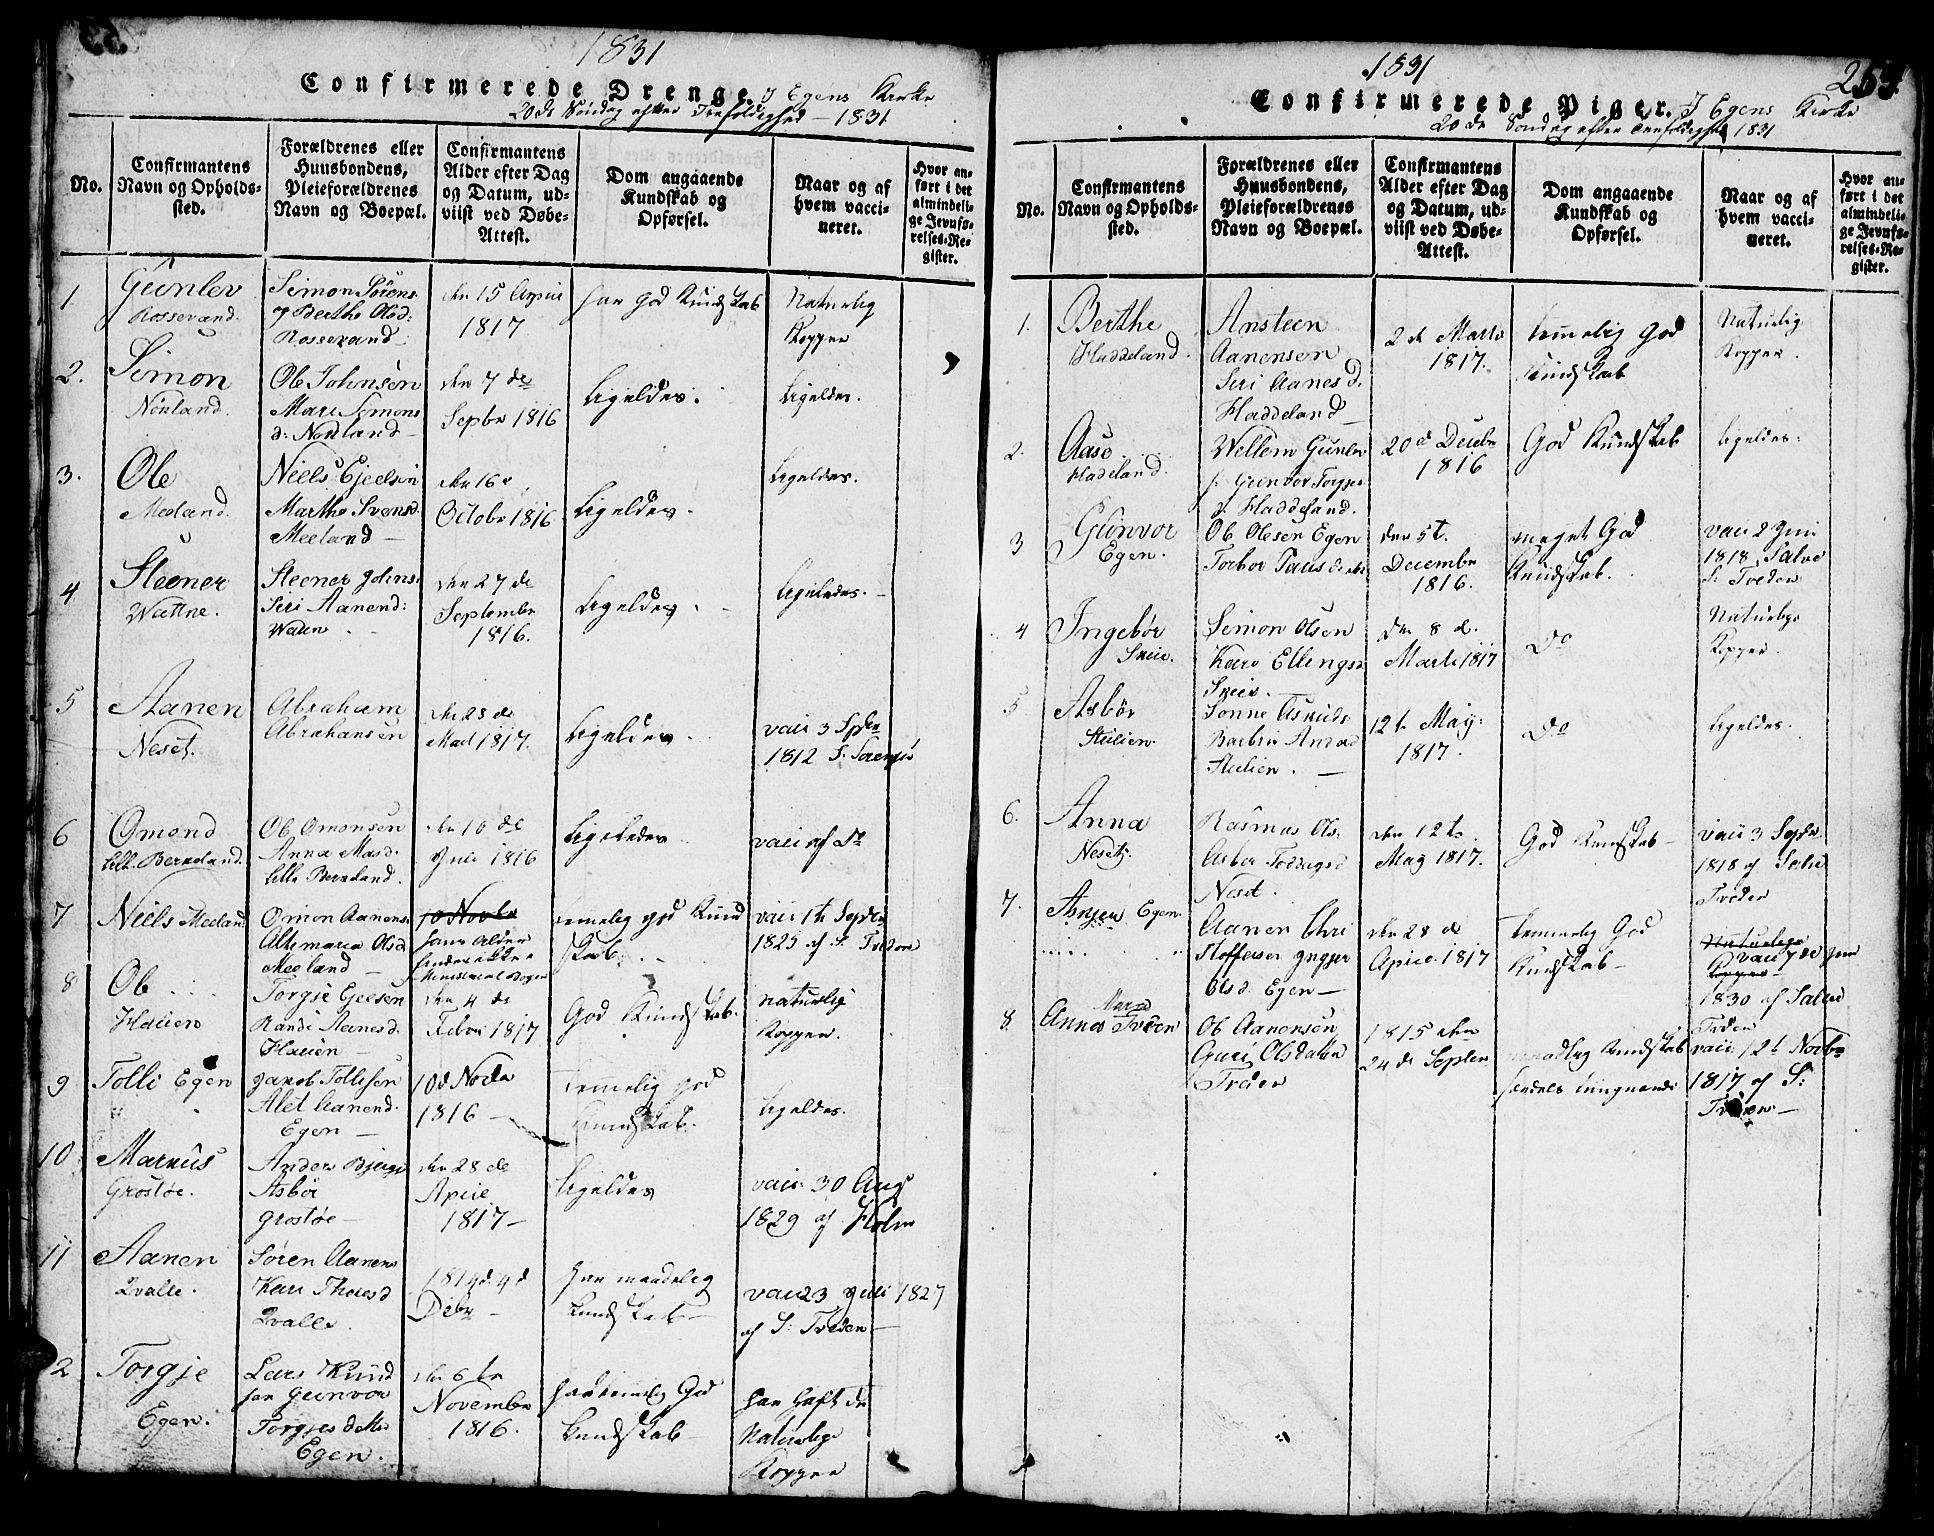 1831
Confirmerede Drenge, I Egens Kirke
20de Søndag efter Trefoldighed - 1831
No.
Confirmantens Navn og Opholdssted.
Forældrenes eller Huusbondens, Pleieforældrenes Navn og Boepæl.
Confirmantens Alder efter Dag og Datum, udviist ved Døbe-Attest.
Dom angaaende Kundskab og Opførsel.
Naar og af hvem vaccineret.
Hvor anført i det almindelige Jevnførelses-Register.
1 Gunlev Rossevand. Simon Sørens. og Berthe Olsd: Rossevand den 15 April 1817 har god Kundskab Naturlig Kopper
2. Simon Norland. Ole Johnsen Mari Simons d: Norland den 7de Septbr 1816 Ligeledes. Ligeledes.
3. Ole Meeland. Niels Ejeelsen Marthe Svensd. Meeland den 16 October 1816 Ligeledes. Ligeledes.
4 Steener Wattne. Steener Johns. Siri Aanend: Watten den 27de September 1816. Ligeledes. Ligeledes.
5 Aanen Neset. Abraham Abrahansen den 28 de 1817. Ligeledes vacc 3 Sptbr 1812 S.
6 Omond Lille Berneland. Ole Omonsen Anna Masd. Lille Berneland. den 10de Juli 1816 Ligeledes vacc af Do
7 Niels Meeland Omon Aanens. Meeland 10 Novbr hans Alder findes ikke i temelig god Kundskab. vacc 1te Septbr 1825 af S. Treden
8 Ole Hauen Torgje Ejeesen Randi Aanesd. Hauen den 4 de Febr 1817 God Kundskab. Naturlig Kopper.
9 Tolli Egen Jakob Tollesen Alet Aanend. Egen 10d Novbr 1816 temmelig god Kundskab. Ligeledes.
10 Markus Grostøe. Anders Asbør Grostøe den 28 de April 1817 Ligeledes vacc. 30 Aug 1829 af Holm
11 Aanen Qvalle. Søren Aanens Kari Thoresd Qvalle. 1814 d. 4 d Debr har maadelig Kundskab vacc 23 Juli 1827 af S: Treden
12 Torgje Egen. Lars Knudsen Gunvor Torgjesdatter Egen. den 6te November 1816. har temelig God Kundskab har haft de Naturlige Kopper
1831
263.
Confirmerede Piger, I Egens Kirke
20de Søndag efter Trefoldighed 1831
No.
Confirmantens Navn og Opholdssted.
Forældrenes eller Huusbondens, Pleieforældrenes Navn og Boepæl.
Confirmantens Alder efter Dag og Datum, udviist ved Døbe-Attest.
Dom angaaende Kundskab og Opførsel.
Naar og af hvem vaccineret.
Hvor anført i det almindelige Jevnførelses-Register.
1. Berthe Haddeland. Ansteen Aanensen Siri Aanesd. Haddeland 2de Marts 1817. temelig God Kundskab Naturlig Kopper.
2. Aase Hadeland. Wellem Gunlev s. Gunvor Torgje d. Haddeland. 20d Decebr 1816 God Kundskab Ligeledes:
3 Gunvor Egen. Ole Olesen Egen Torbor den 5t. December 1816. meget God Kundskab. vacc 2 Juni 1818 Salve S: Treden
4 Ingebør Skeie. Simon Olsen Kari Ellingsd Skeie. den 8 d. Marti 1817 Do Naturlige Kopper.
5 Asbør Stulien. Sonne Barbru Stulien. 12t May 1817. Do Ligeledes.
6. Anna Neset. Rasmus Ols. Neset. den 12te May 1817. God Kundskab vacc 3 Septbr 1818 af Salve Treden
7. Egen. Aanen Christoffersen Olsd. Egen den 28 de April 1817 temmelig God Kundskab Naturlige Kopper vacc 7de Juni 1830 af Salve Treden
8. Anna Treden Ole Aanensen Guri Olsdatter Treden 1815 den 24de Septbr maadelig Kundskab vacc. 12t Novbr 1817 af S: Treden